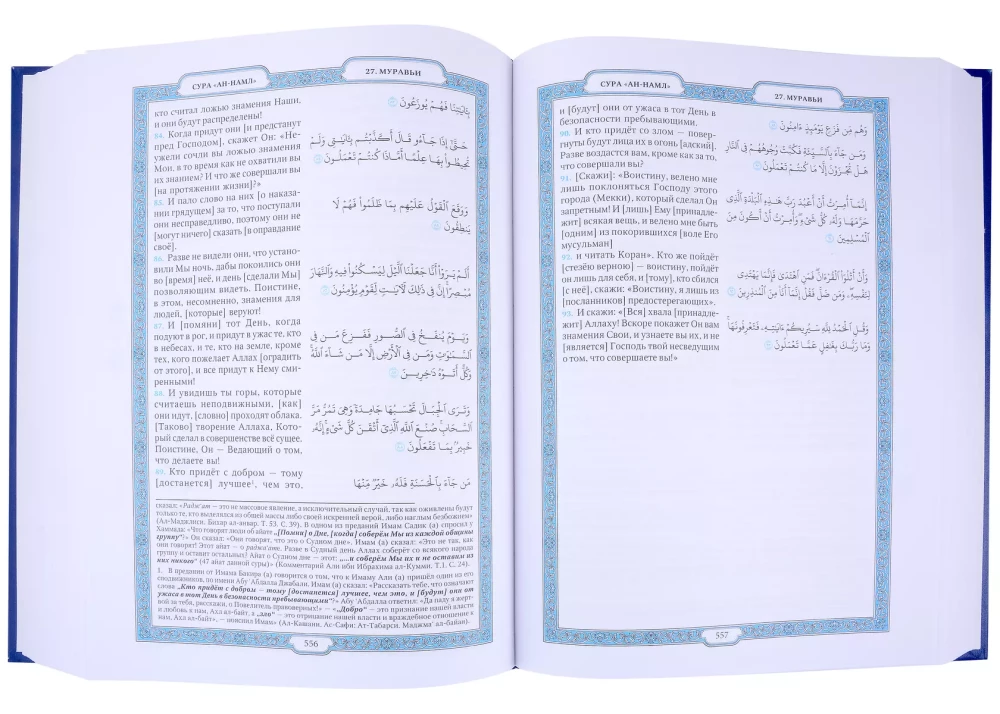 СУРА «АН-НАМЛ»
27. МУРАВЬИ
кто считал ложью знамения Наши,
и они будут распределены!
84. Когда придут они [и предстанут
пред Господом], скажет Он: «Не-
ужели сочли вы ложью знамения
Мои, в то время как не охватили вы
их знанием? И что же совершали вы
[на протяжении жизни]?»
85. И пало слово на них [о наказа-
нии грядущем] за то, что поступали
они несправедливо, поэтому они не
[могут ничего] сказать [в оправдание
своё].
86. Разве не видели они, что устано-
вили Мы ночь, дабы покоились они
во [время] неё, и день [сделали Мы]
позволяющим видеть. Поистине,
в этом, несомненно, знамения для
людей, [которые] веруют!
87. И [помяни] тот День, когда
подуют в рог, и придут в ужас те, кто
в небесах, и те, кто на земле, кроме
тех, кого пожелает Аллах [оградить
от этого], и все придут к Нему сми-
ренными!
88. И увидишь ты горы, которые
считаешь неподвижными, [как]
они идут, [словно] проходят облака.
[Таково] творение Аллаха, Кото-
рый сделал в совершенстве всё сущее.
Поистине, Он — Ведающий о том,
что делаете вы!
89. Кто придёт с добром — тому
[достанется] лучшее¹, чем это,
بِـَٔايَٰتِنَا فَهُمْ يُوزَعُونَ
حَتَّىٰٓ إِذَا جَآءُو قَالَ أَكَذَّبْتُم بِـَٔايَٰتِي وَلَمْ
تُحِيطُوا۟ بِهَا عِلْمًا أَمَّاذَا كُنتُمْ تَعْمَلُونَ
وَوَقَعَ ٱلْقَوْلُ عَلَيْهِم بِمَا ظَلَمُوا۟ فَهُمْ لَا
يَنطِقُونَ
أَلَمْ يَرَوْا۟ أَنَّا جَعَلْنَا ٱلَّيْلَ لِيَسْكُنُوا۟ فِيهِ وَٱلنَّهَارَ
مُبْصِرًا إِنَّ فِي ذَٰلِكَ لَـَٔايَٰتٍ لِّقَوْمٍ يُؤْمِنُونَ
وَيَوْمَ يُنفَخُ فِي ٱلصُّورِ فَفَزِعَ مَن فِي
ٱلسَّمَٰوَٰتِ وَمَن فِي ٱلْأَرْضِ إِلَّا مَن شَآءَ ٱللَّهُ
وَكُلٌّ أَتَوْهُ دَٰخِرِينَ
وَتَرَى ٱلْجِبَالَ تَحْسَبُهَا جَامِدَةً وَهِيَ تَمُرُّ مَرَّ
ٱلسَّحَابِ صُنْعَ ٱللَّهِ ٱلَّذِيٓ أَتْقَنَ كُلَّ شَيْءٍ إِنَّهُۥ
خَبِيرٌۢ بِمَا تَفْعَلُونَ
مَن جَآءَ بِٱلْحَسَنَةِ فَلَهُۥ خَيْرٌ مِّنْهَا
сказал: «Радж'ат — это не массовое явление, а исключительный случай, так как оживлены будут
только те, кто выделялся из общей массы либо своей искренней верой, либо наглым безбожием»
(Ал-Маджлиси. Бихар ал-анвар. Т. 53. С. 39). В одном из преданий Имам Садик (а) спросил у
Хаммада: «Что говорят люди об айате „[Помяни] о Дне, [когда] соберём Мы из каждой общины
группу“?» Он сказал: «Они говорят, что это о Судном дне». Имам (а) сказал: «Это не так, как
они говорят! Этот айат — о радж'ате. Разве в Судный день Аллах соберёт со всякого народа
группу и оставит остальных? Айат о Судном дне — этот: „...и соберём Мы их и не оставим из
них никого“ (47 айат данной суры)» (Комментарий Али ибн Ибрахима ал-Кумми. Т.1. С. 24).
1. В предании от Имама Бакира (а) говорится о том, что к Имаму Али (а) пришёл один из его
сподвижников, по имени Абу 'Абдалла Джабали. Имам (а) сказал: «Рассказать тебе, что означают
слова „Кто придёт с добром — тому [достанется] лучшее, чем это, и [будут] они от
ужаса в тот День в безопасности пребывающими“?» Абу 'Абдалла ответил: «Да паду я жерт-
вой за тебя, расскажи, о Повелитель правоверных!» — «„Добро“ — это признание нашей власти
и любовь к нам, Ахл ал-байт, а „зло“ — это отрицание нашей власти и враждебное отношение к
нам, Ахл ал-байт», — пояснил Имам» (Ал-Кашани. Ас-Сафи; Ат-Табарси. Маджма' ал-байан).
556
СУРА «АН-НАМЛ»
27. МУРАВЬИ
и [будут] они от ужаса в тот День в
безопасности пребывающими.
90. И кто придёт со злом — повер-
гнуты будут лица их в огонь [адский].
Разве воздастся вам, кроме как за то,
что совершали вы?
91. [Скажи]: «Воистину, велено мне
лишь поклоняться Господу этого
города (Мекки), который сделал Он
запретным! И [лишь] Ему [принадле-
жит] всякая вещь, и велено мне быть
[одним] из покорившихся [воле Его
мусульман]
92. и читать Коран». Кто же пойдёт
[стезёю верною] — воистину, пойдёт
он лишь для себя, и [тому], кто сбился
[с неё], скажи: «Воистину, я лишь из
[посланников] предостерегающих».
93. И скажи: «[Вся] хвала [принадле-
жит] Аллаху! Вскоре покажет Он вам
знамения Свои, и узнаете вы их, и не
[является] Господь твой несведущим
о том, что совершаете вы!»
وَهُم مِّن فَزَعٍ يَوْمَئِذٍ ءَامِنُونَ
وَمَن جَآءَ بِٱلسَّيِّئَةِ فَكُبَّتْ وُجُوهُهُمْ فِي ٱلنَّارِ
هَلْ تُجْزَوْنَ إِلَّا مَا كُنتُمْ تَعْمَلُونَ
إِنَّمَآ أُمِرْتُ أَنْ أَعْبُدَ رَبَّ هَٰذِهِ ٱلْبَلْدَةِ ٱلَّذِي
حَرَّمَهَا وَلَهُۥ كُلُّ شَيْءٍ وَأُمِرْتُ أَنْ أَكُونَ مِنَ
ٱلْمُسْلِمِينَ
وَأَنْ أَتْلُوَا۟ ٱلْقُرْءَانَ فَمَنِ ٱهْتَدَىٰ فَإِنَّمَا يَهْتَدِي
لِنَفْسِهِۦ وَمَن ضَلَّ فَقُلْ إِنَّمَآ أَنَا۠ مِنَ ٱلْمُنذِرِينَ
وَقُلِ ٱلْحَمْدُ لِلَّهِ سَيُرِيكُمْ ءَايَٰتِهِۦ فَتَعْرِفُونَهَا
وَمَا رَبُّكَ بِغَٰفِلٍ عَمَّا تَعْمَلُونَ
557